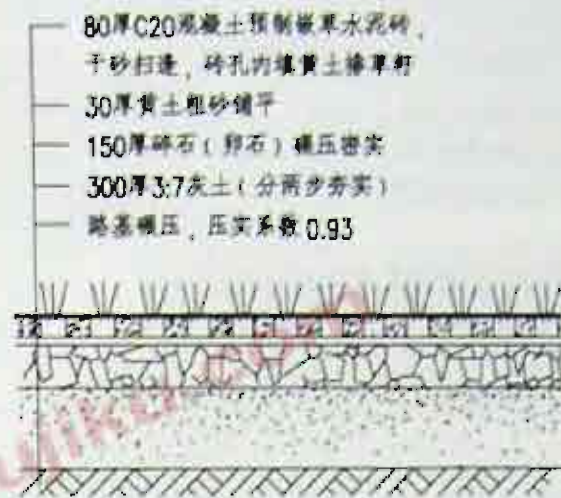 80厚C20混凝土预制嵌草水泥砖,
干砂扫缝, 砖孔内填黄土掺草籽
30厚黄土粗砂铺平
150厚碎石(卵石)碾压密实
300厚3:7灰土(分两步夯实)
路基碾压, 压实系数0.93